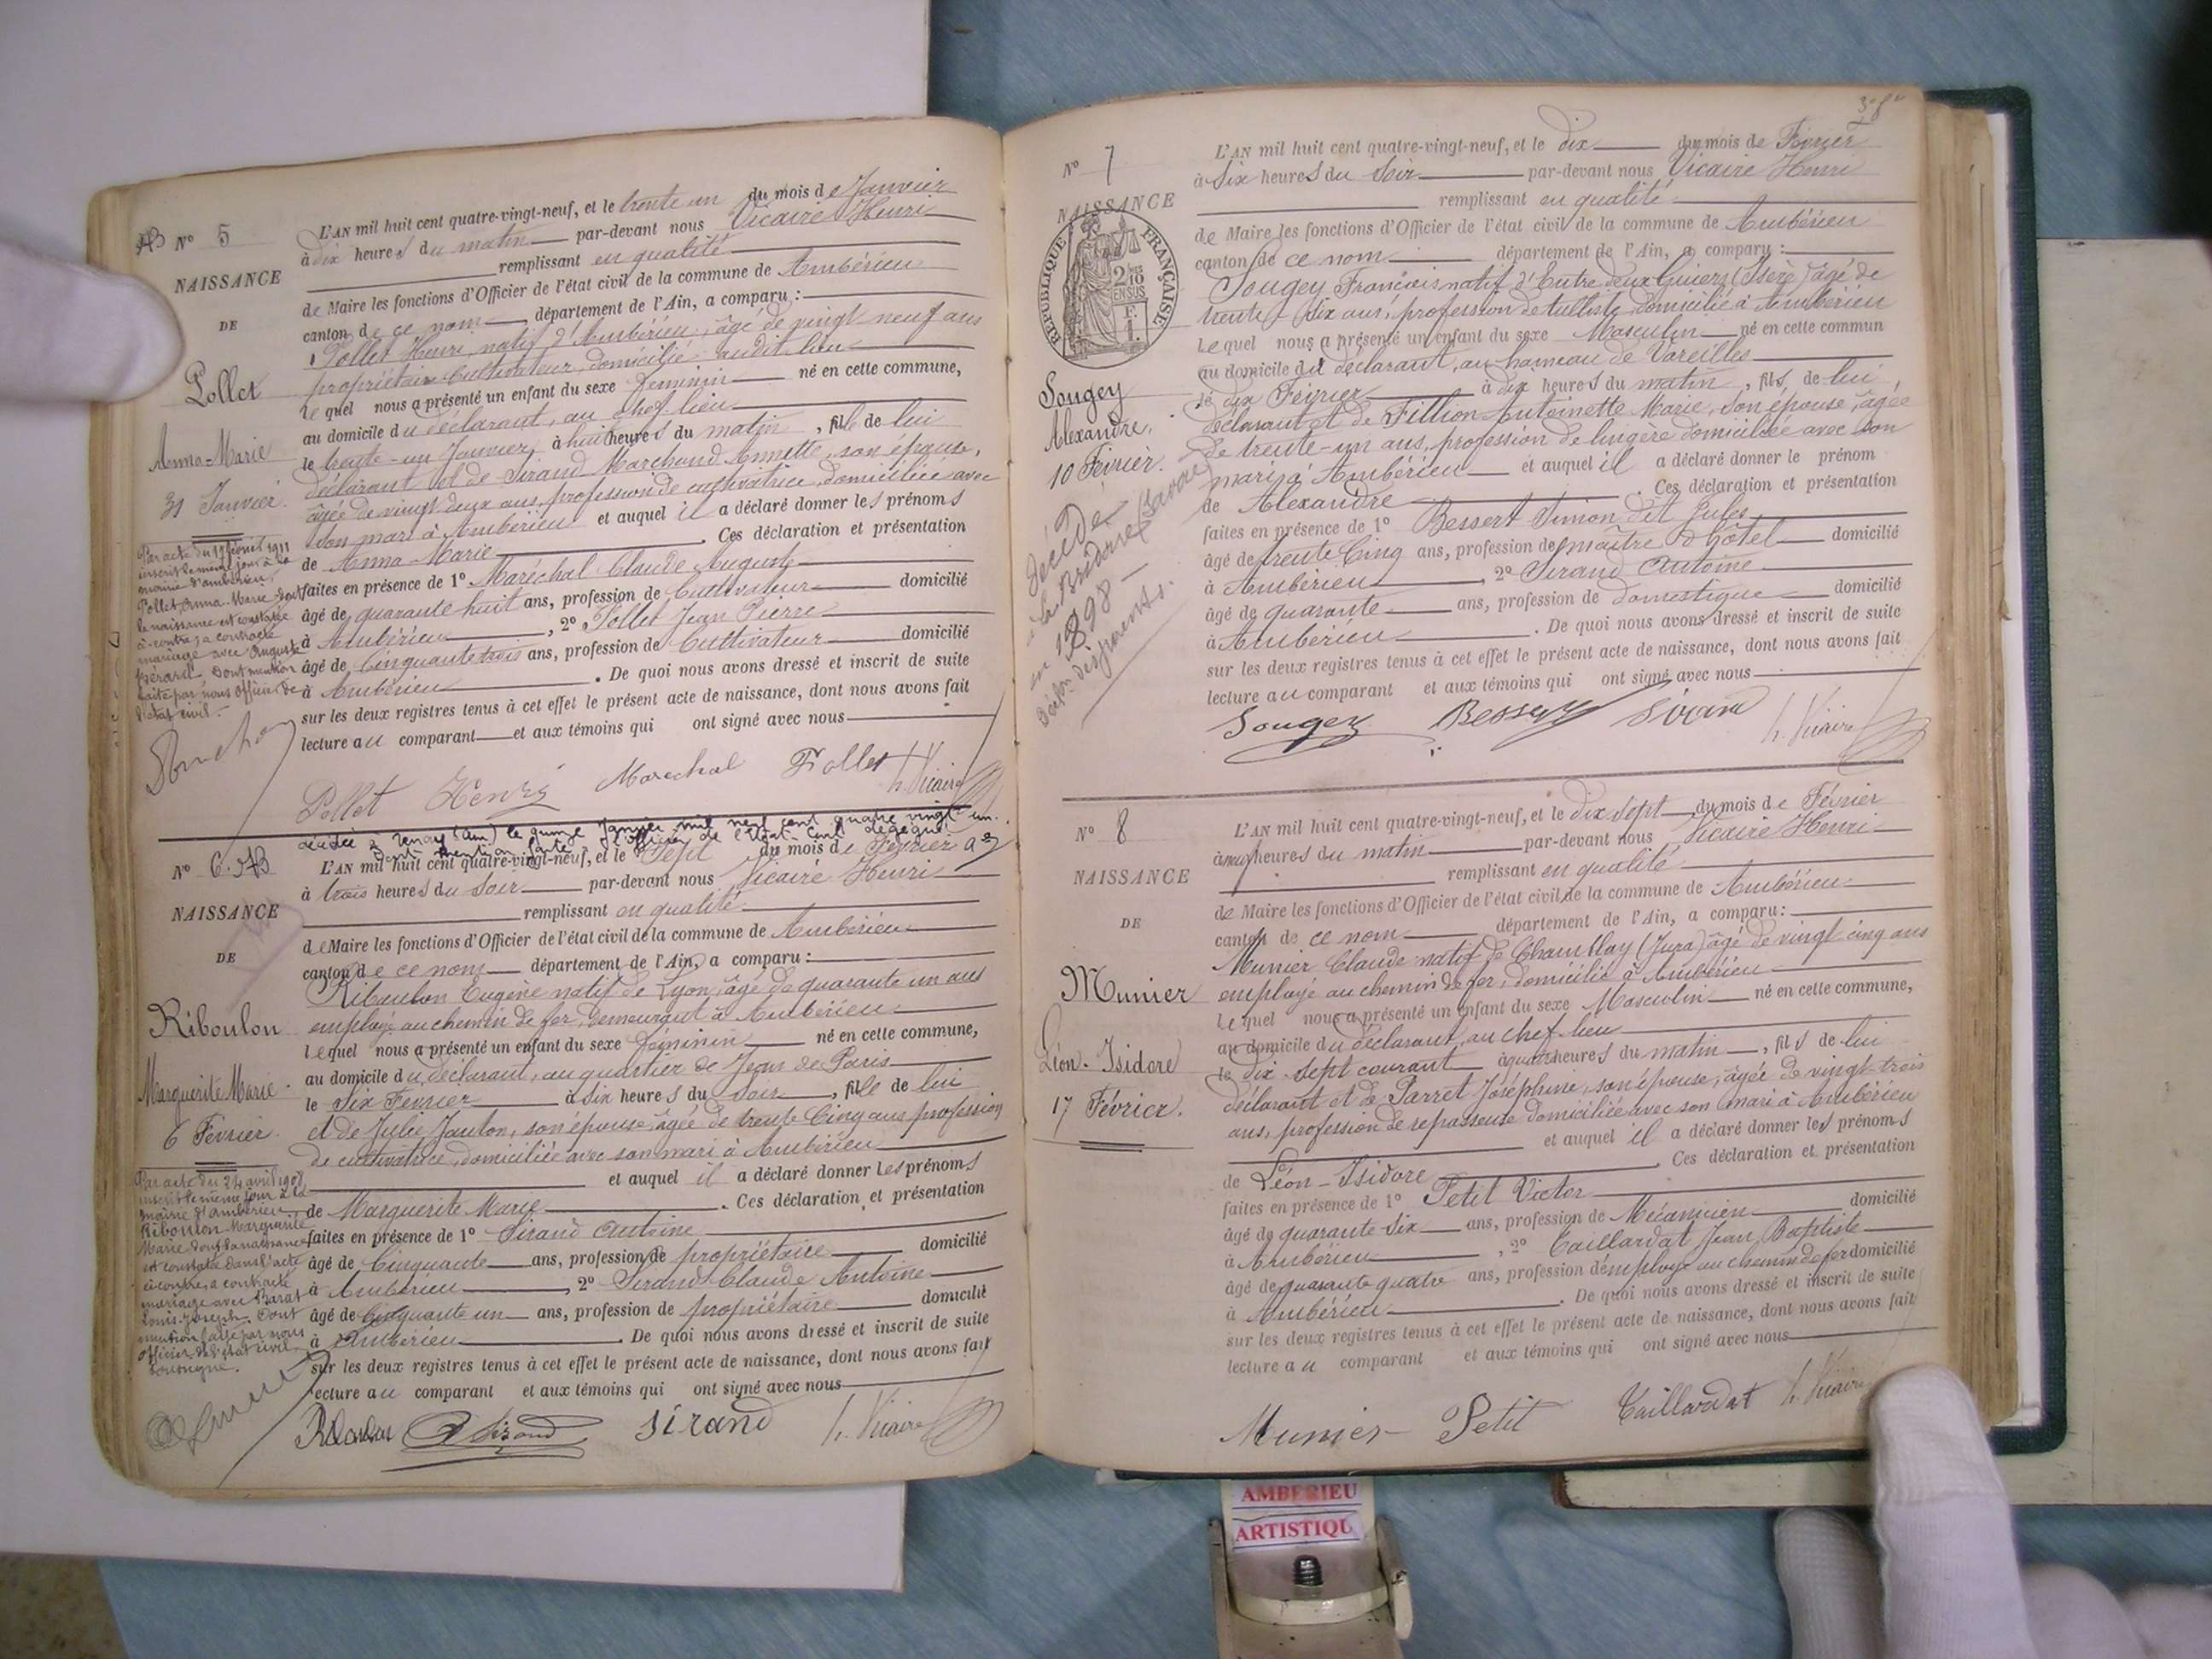 N° 5
NAISSANCE
DE
Pollet
Anna-Marie
31 Janvier.
Par acte du 17 février 1911
inscrit le même jour à la
mairie d'ambérieu,
Pollet Anna-Marie dont
la naissance est constatée
ci-contre, a contracté
mariage avec Auguste
pérard, Dont mention
faite par nous officier de
l'état civil.
L'AN mil huit cent quatre-vingt-neuf, et le trente un du mois de Janvier
à dix heures du matin par-devant nous Vicaire Henri
remplissant en qualité
de Maire les fonctions d'Officier de l'état civil de la commune de Ambérieu
canton de ce nom, département de l'Ain, a comparu :
Pollet Henri, natif d'Ambérieu, âgé de vingt neuf ans
propriétaire cultivateur, domicilié audit lieu
lequel nous a présenté un enfant du sexe féminin né en cette commune,
au domicile du déclarant, au chef lieu
le trente-un Janvier, à huit heures du matin, fille de lui
déclarant et de Sirand Marchand Annette, son épouse,
âgée de vingt deux ans, profession de cultivatrice, domiciliée avec
son mari à Ambérieu et auquel il a déclaré donner les prénoms
de Anna-Marie. Ces déclaration et présentation
faites en présence de 1° Maréchal Claude Auguste
âgé de quarante huit ans, profession de Cultivateur domicilié
à Ambérieu, 2° Pollet Jean Pierre
âgé de Cinquante trois ans, profession de Cultivateur domicilié
à Ambérieu. De quoi nous avons dressé et inscrit de suite
sur les deux registres tenus à cet effet le présent acte de naissance, dont nous avons fait
lecture au comparant et aux témoins qui ont signé avec nous
Pollet Henri Marechal Pollet h. Vicaire
décédée à Tenay (Ain) le quinze Janvier mil neuf cent quatre vingt un.
dont mention faite l'officier de l'Etat-Civil délégué.
N° 6.
NAISSANCE
DE
Riboulon
Marguerite Marie.
6 Février.
Par acte du 24 avril 1908
inscrit le même jour à la
mairie d'ambérieu,
Riboulon Marguerite
Marie dont la naissance
est constatée dans l'acte
ci-contre, a contracté
mariage avec Barat
Louis Joseph. Dont
mention faite par nous
officier de l'état civil
soussigné.
L'AN mil huit cent quatre-vingt-neuf, et le Sept du mois de Février
à trois heures du Soir par-devant nous Vicaire Henri
remplissant en qualité
de Maire les fonctions d'Officier de l'état civil de la commune de Ambérieu
canton de ce nom département de l'Ain, a comparu :
Riboulon Eugène natif de Lyon, âgé de quarante un ans
employé au chemin de fer, demeurant à Ambérieu
lequel nous a présenté un enfant du sexe féminin né en cette commune,
au domicile du déclarant, au quartier de Jean de Paris
le Six Février à Six heures du Soir, fille de lui
et de Julie Janton, son épouse, âgée de trente Cinq ans profession
de cultivatrice, domiciliée avec son mari à Ambérieu
et auquel il a déclaré donner les prénoms
de Marguerite Marie. Ces déclaration et présentation
faites en présence de 1° Sirand Antoine
âgé de Cinquante ans, profession de propriétaire domicilié
à Ambérieu, 2° Sirand Claude Antoine
âgé de Cinquante un ans, profession de propriétaire domicilié
à Ambérieu. De quoi nous avons dressé et inscrit de suite
sur les deux registres tenus à cet effet le présent acte de naissance, dont nous avons fait
lecture au comparant et aux témoins qui ont signé avec nous
Riboulon Sirand Sirand h. Vicaire
N° 7
NAISSANCE
RÉPUBLIQUE FRANÇAISE
2/10 EN SUS
Sougey
Alexandre.
10 Février.
Décédé
à la Bridoire (Savoie)
en 1898
L'AN mil huit cent quatre-vingt-neuf, et le dix du mois de Février
à Six heures du Soir par-devant nous Vicaire Henri
remplissant en qualité
de Maire les fonctions d'Officier de l'état civil de la commune de Ambérieu
canton de ce nom département de l'Ain, a comparu :
Sougey François natif d'Entre deux Guiers (Isère) âgé de
trente-Six ans, profession de tulliste, domicilié à Ambérieu
Lequel nous a présenté un enfant du sexe Masculin né en cette commun
au domicile du déclarant, au hameau de Vareilles
le dix Février à dix heures du matin, fils de lui
déclarant et de Fillion Antoinette Marie, Son épouse, âgée
de trente-un ans, profession de lingère domiciliée avec son
mari à Ambérieu et auquel il a déclaré donner le prénom
de Alexandre. Ces déclaration et présentation
faites en présence de 1° Bessert Simon dit Jules
âgé de trente Cinq ans, profession de maître d'hôtel domicilié
à Ambérieu, 2° Sirand Antoine
âgé de quarante ans, profession de domestique domicilié
à Ambérieu. De quoi nous avons dressé et inscrit de suite
sur les deux registres tenus à cet effet le présent acte de naissance, dont nous avons fait
lecture au comparant et aux témoins qui ont signé avec nous
Sougey Bessert Sirand h. Vicaire
N° 8
NAISSANCE
DE
Munier
Léon-Isidore
17 Février.
L'AN mil huit cent quatre-vingt-neuf, et le dix Sept du mois de Février
à neuf heures du matin par-devant nous Vicaire Henri
remplissant en qualité
de Maire les fonctions d'Officier de l'état civil de la commune de Ambérieu
canton de ce nom département de l'Ain, a comparu :
Munier Claude natif de Chamblay (Jura) âgé de vingt cinq ans
employé au chemin de fer, domicilié à Ambérieu
Lequel nous a présenté un enfant du sexe Masculin né en cette commune,
au domicile du déclarant, au chef lieu
le dix-sept courant à quatre heures du matin, fils de lui
déclarant et de Parret Joséphine, son épouse, âgée de vingt-trois
ans, profession de repasseuse domiciliée avec son mari à Ambérieu
et auquel il a déclaré donner les prénoms
de Léon-Isidore. Ces déclaration et présentation
faites en présence de 1° Petit Victor
âgé de quarante Six ans, profession de Mécanicien domicilié
à Ambérieu, 2° Caillardat Jean Baptiste
âgé de quarante quatre ans, profession d'employé au chemin de fer domicilié
à Ambérieu. De quoi nous avons dressé et inscrit de suite
sur les deux registres tenus à cet effet le présent acte de naissance, dont nous avons fait
lecture au comparant et aux témoins qui ont signé avec nous
Munier Petit Caillardat h. Vicaire
AMBERIEU
ARTISTIQU